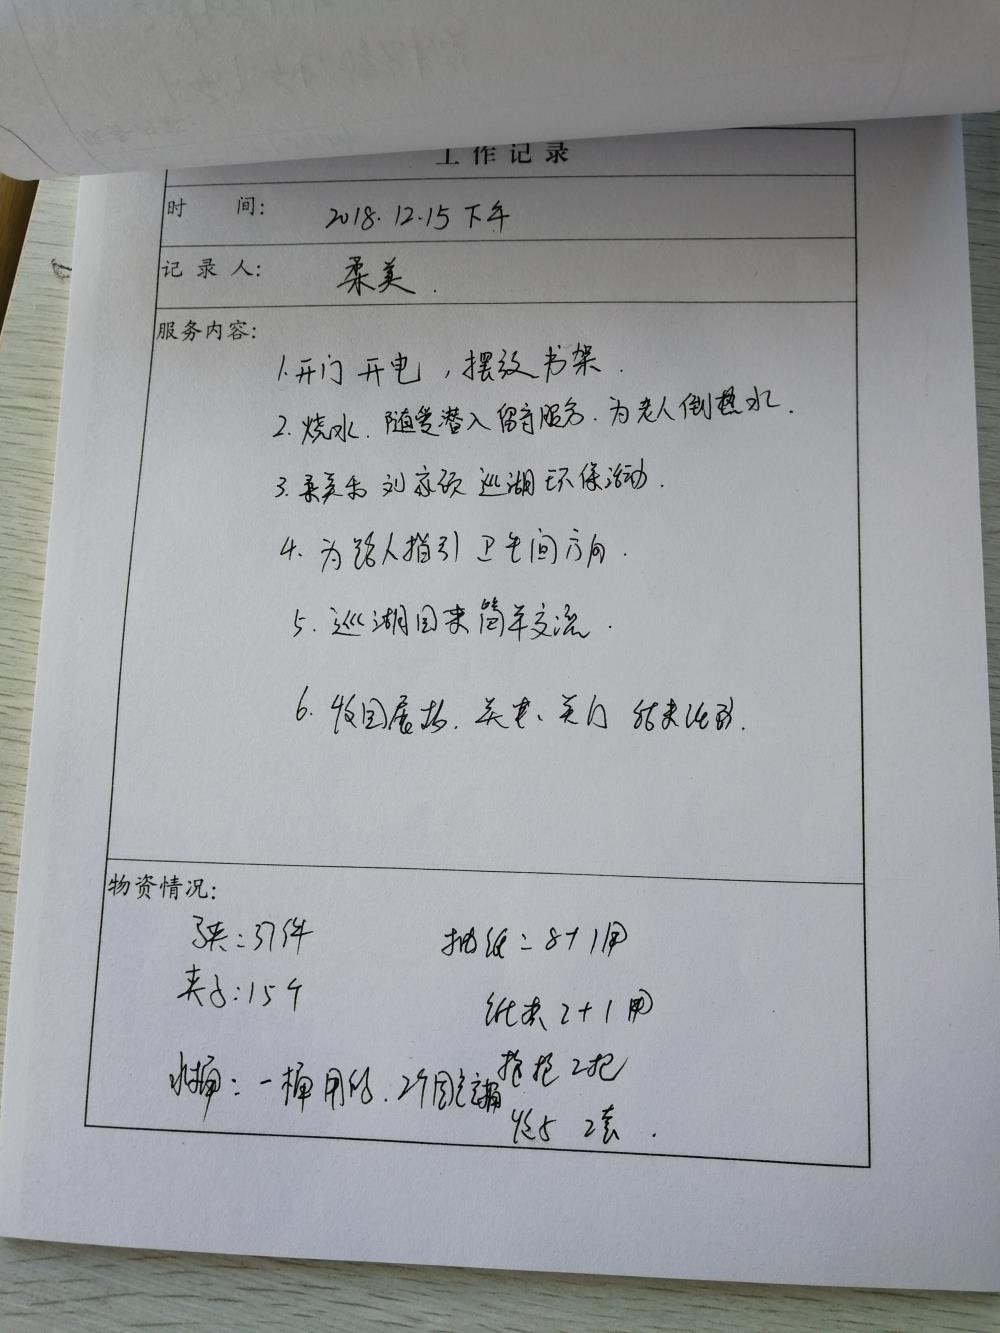 工作记录
时 间: 2018.12.15 下午
记录人: 柔美.
服务内容:
1.开门 开电,摆放书架.
2.烧水.随受潜入留言服务.为老人倒热水.
3.柔美和刘家欣巡湖环保活动.
4.为路人指引卫生间方向.
5.巡湖回来简单交流.
6.收回展板.关电、关门 结束活动.
物资情况:
:37件 抽纸:8+1用
夹子:15个
纸 2+1用
水桶:一桶用的.2个空桶
2把
2套.